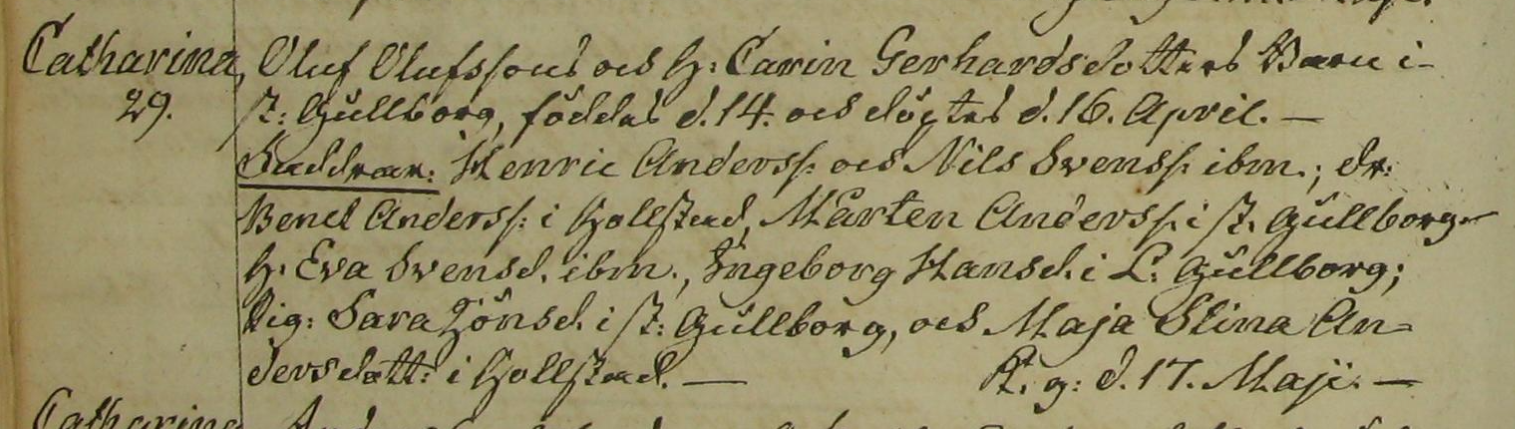 Catharina, Oluf Olufssons och H: Carin Gerhardsdotters Barn i
29. st: Gullborg, föddes d. 14. och döptes d. 16. April. —
Faddrar: Henric Anderss: och Nils Svenss: ibm.; dr:
Bencht Anderss: i Hollstad, Mårten Anderss: i st: Gullborg
H: Eva Svensd. ibm., Ingeborg Hansd. i L: Gullborg;
Pig: Sara Jönsd. i st: Gullborg, och Maja Stina An=
dersdott: i Hollstad. — K. g: d. 17. Maji. —
Catharina